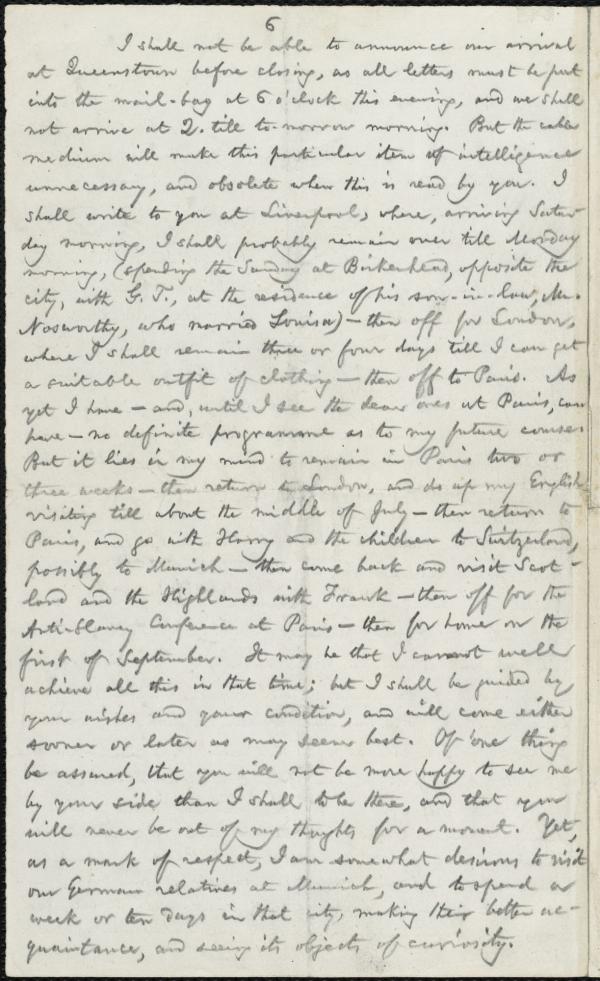 6
I shall not be able to announce our arrival
at Queenstown before closing, as all letters must be put
into the mail-bag at 6 o'clock this evening, and we shall
not arrive at Q. till to-morrow morning. But the cable
medium will make this particular item of intelligence
unnecessary, and obsolete when this is read by you. I
shall write to you at Liverpool, where, arriving Satur-
day morning, I shall probably remain over till Monday
morning, (spending the Sunday at Birkenhead, opposite the
city, with G. T., at the residence of his son-in-law, Mr.
Nosworthy, who married Louisa) — then off for London,
where I shall remain three or four days till I can get
a suitable outfit of clothing — then off to Paris. As
yet I have — and, until I see the dear ones at Paris, can
have — no definite programme as to my future course.
But it lies in my mind to remain in Paris two or
three weeks — then return to London, and do up my English
visiting till about the middle of July — then return to
Paris, and go with Harry and the children to Switzerland,
possibly to Munich — then come back and visit Scot-
land and the Highlands with Frank — then off for the
Anti-Slavery Conference at Paris — then for home on the
first of September. It may be that I cannot well
achieve all this in that time; but I shall be guided by
your wishes and your condition, and will come either
sooner or later as may seem best. Of one thing
be assured, that you will not be more happy to see me
by your side than I shall to be there, and that you
will never be out of my thoughts for a moment. Yet,
as a mark of respect, I am somewhat desirous to visit
our German relatives at Munich, and to spend a
week or ten days in that city, making their better ac-
quaintance, and seeing its objects of curiosity.